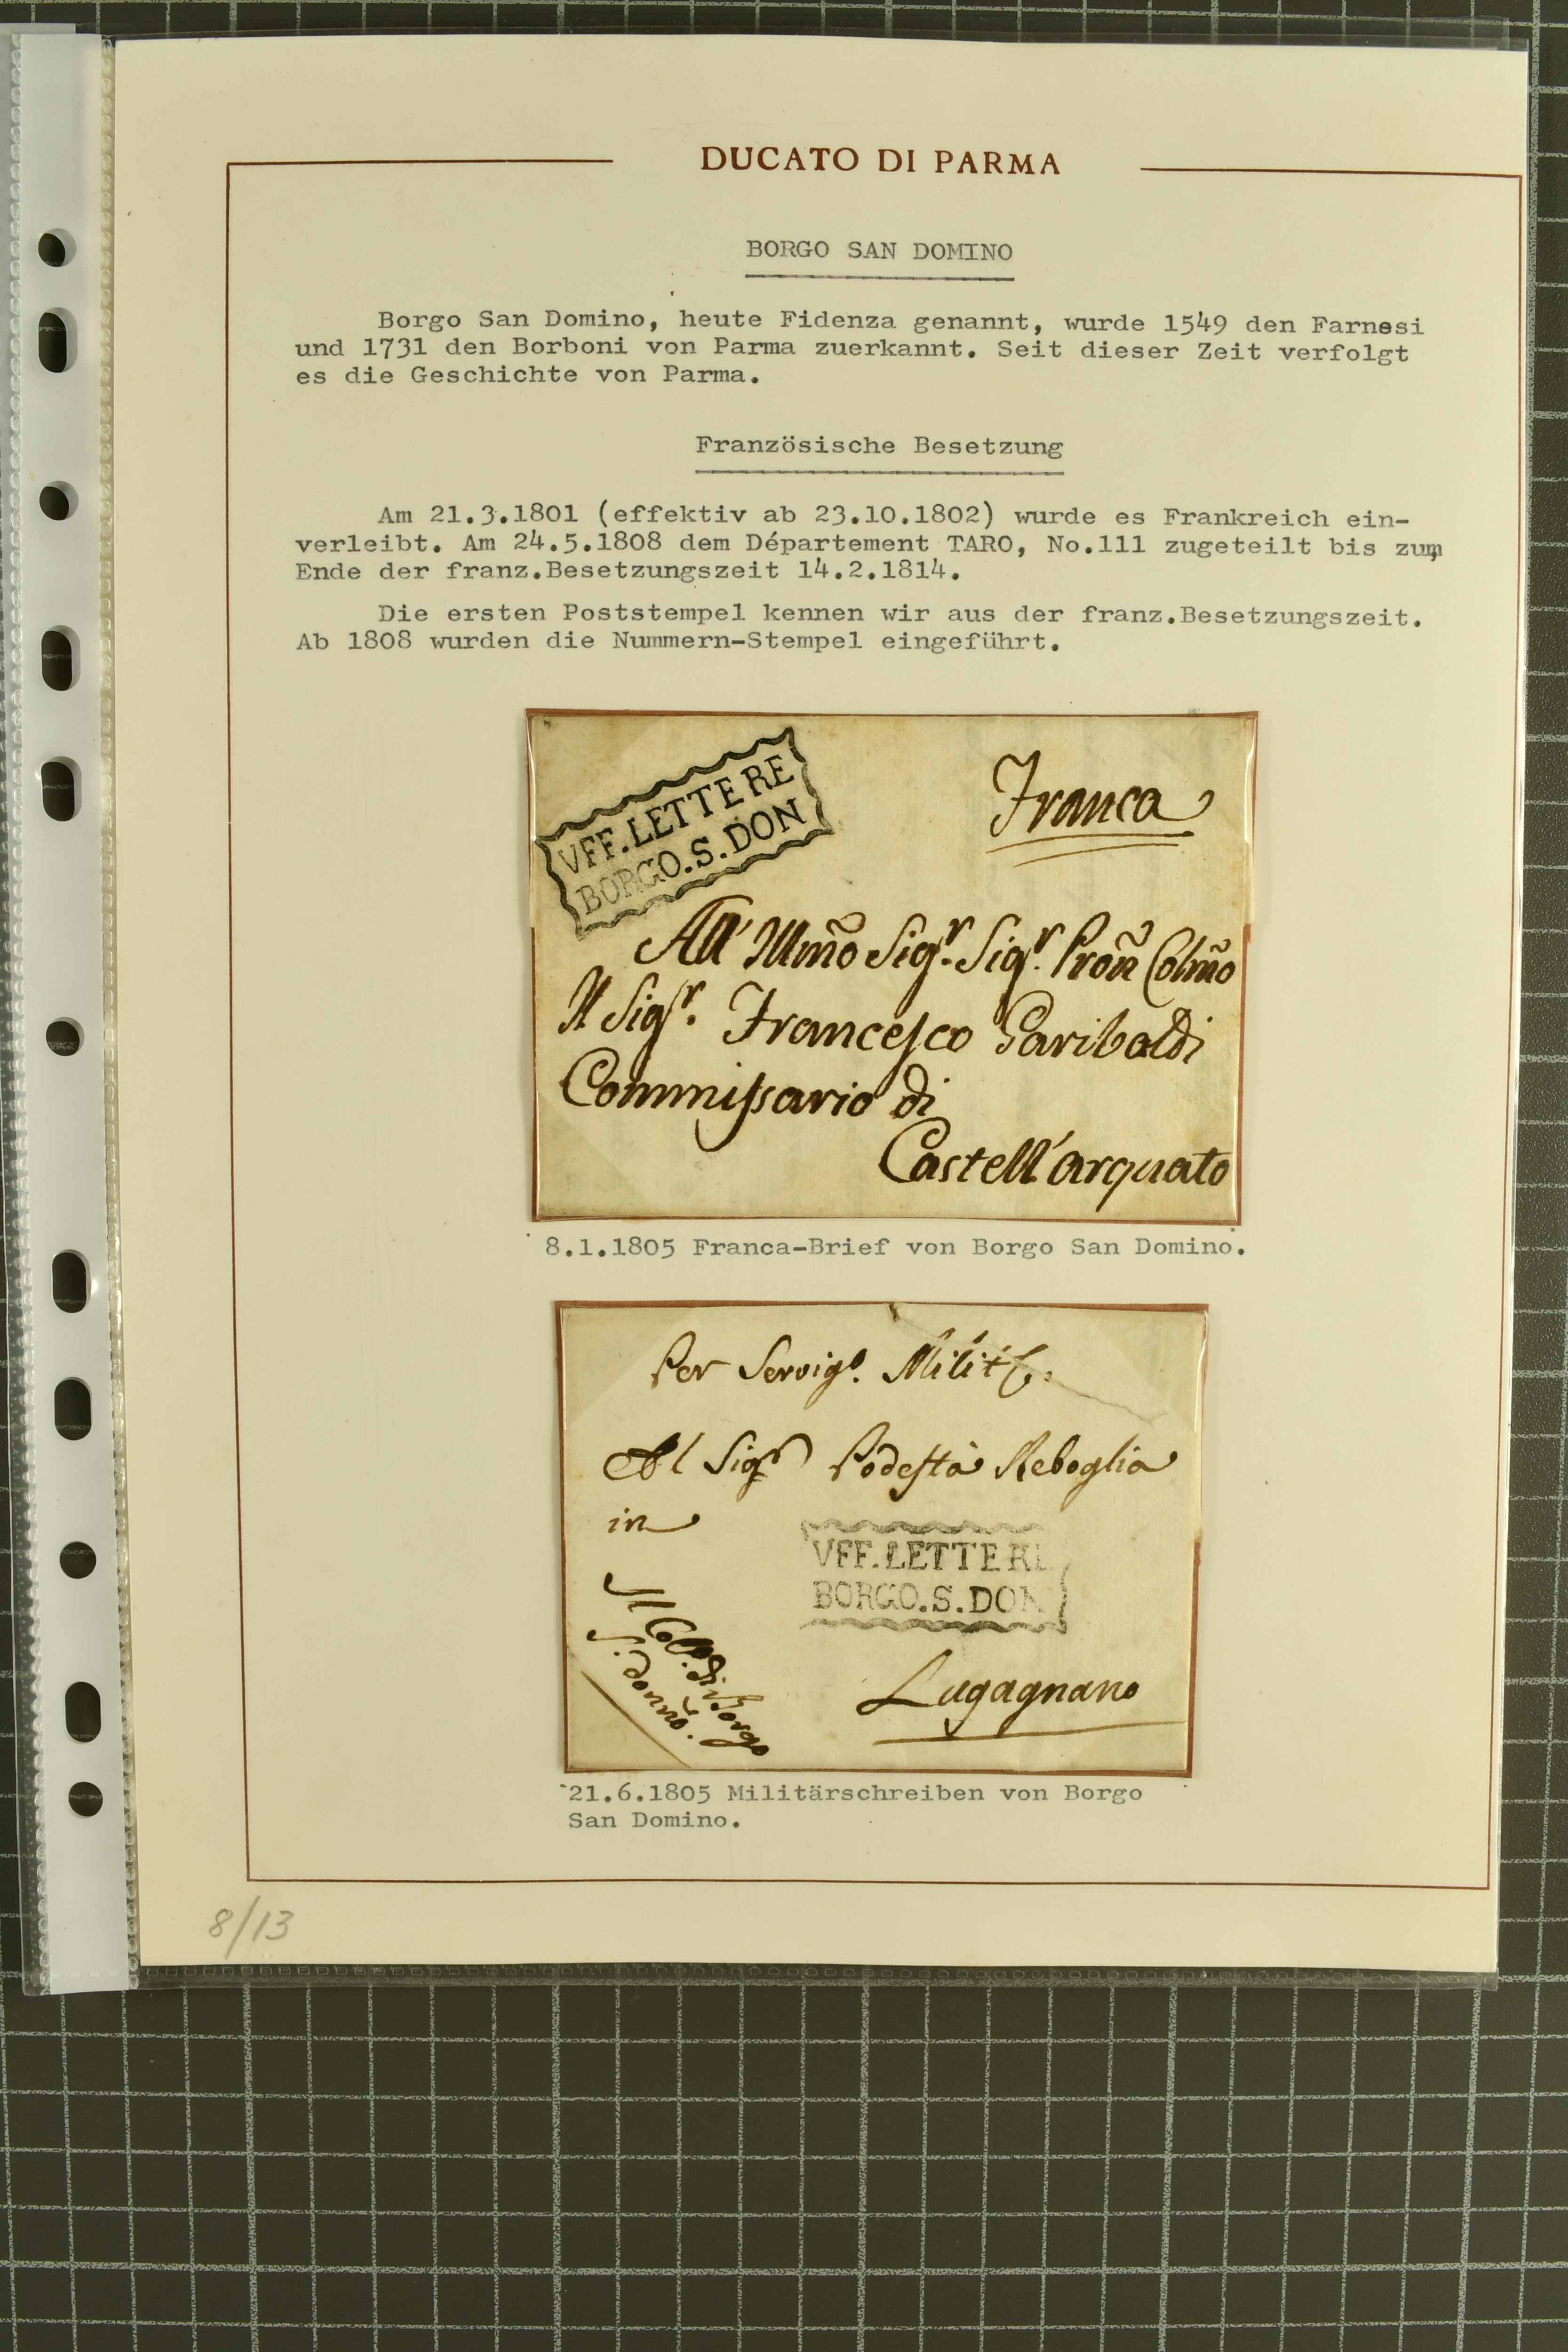 DUCATO DI PARMA
BORGO SAN DOMINO
Borgo San Domino, heute Fidenza genannt, wurde 1549 den Farnesi
und 1731 den Borboni von Parma zuerkannt. Seit dieser Zeit verfolgt
es die Geschichte von Parma.
Französische Besetzung
Am 21.3.1801 (effektiv ab 23.10.1802) wurde es Frankreich ein-
verleibt. Am 24.5.1808 dem Département TARO, No.111 zugeteilt bis zum
Ende der franz.Besetzungszeit 14.2.1814.
Die ersten Poststempel kennen wir aus der franz.Besetzungszeit.
Ab 1808 wurden die Nummern-Stempel eingeführt.
VFF.LETTERE
BORGO.S.DON
Franca
All' Illmõ Sigr. Sigr. Proñ Colmõ
Il Sigr. Francesco Garibaldi
Commissario di
Castell'arquato
8.1.1805 Franca-Brief von Borgo San Domino.
Per Servigo. Milit
Al Sigr Podestà Reboglia
in
VFF.LETTERE
BORGO.S.DON
Il Coll. di Borgo
S. Donnõ.
Lugagnano
21.6.1805 Militärschreiben von Borgo
San Domino.
8/13